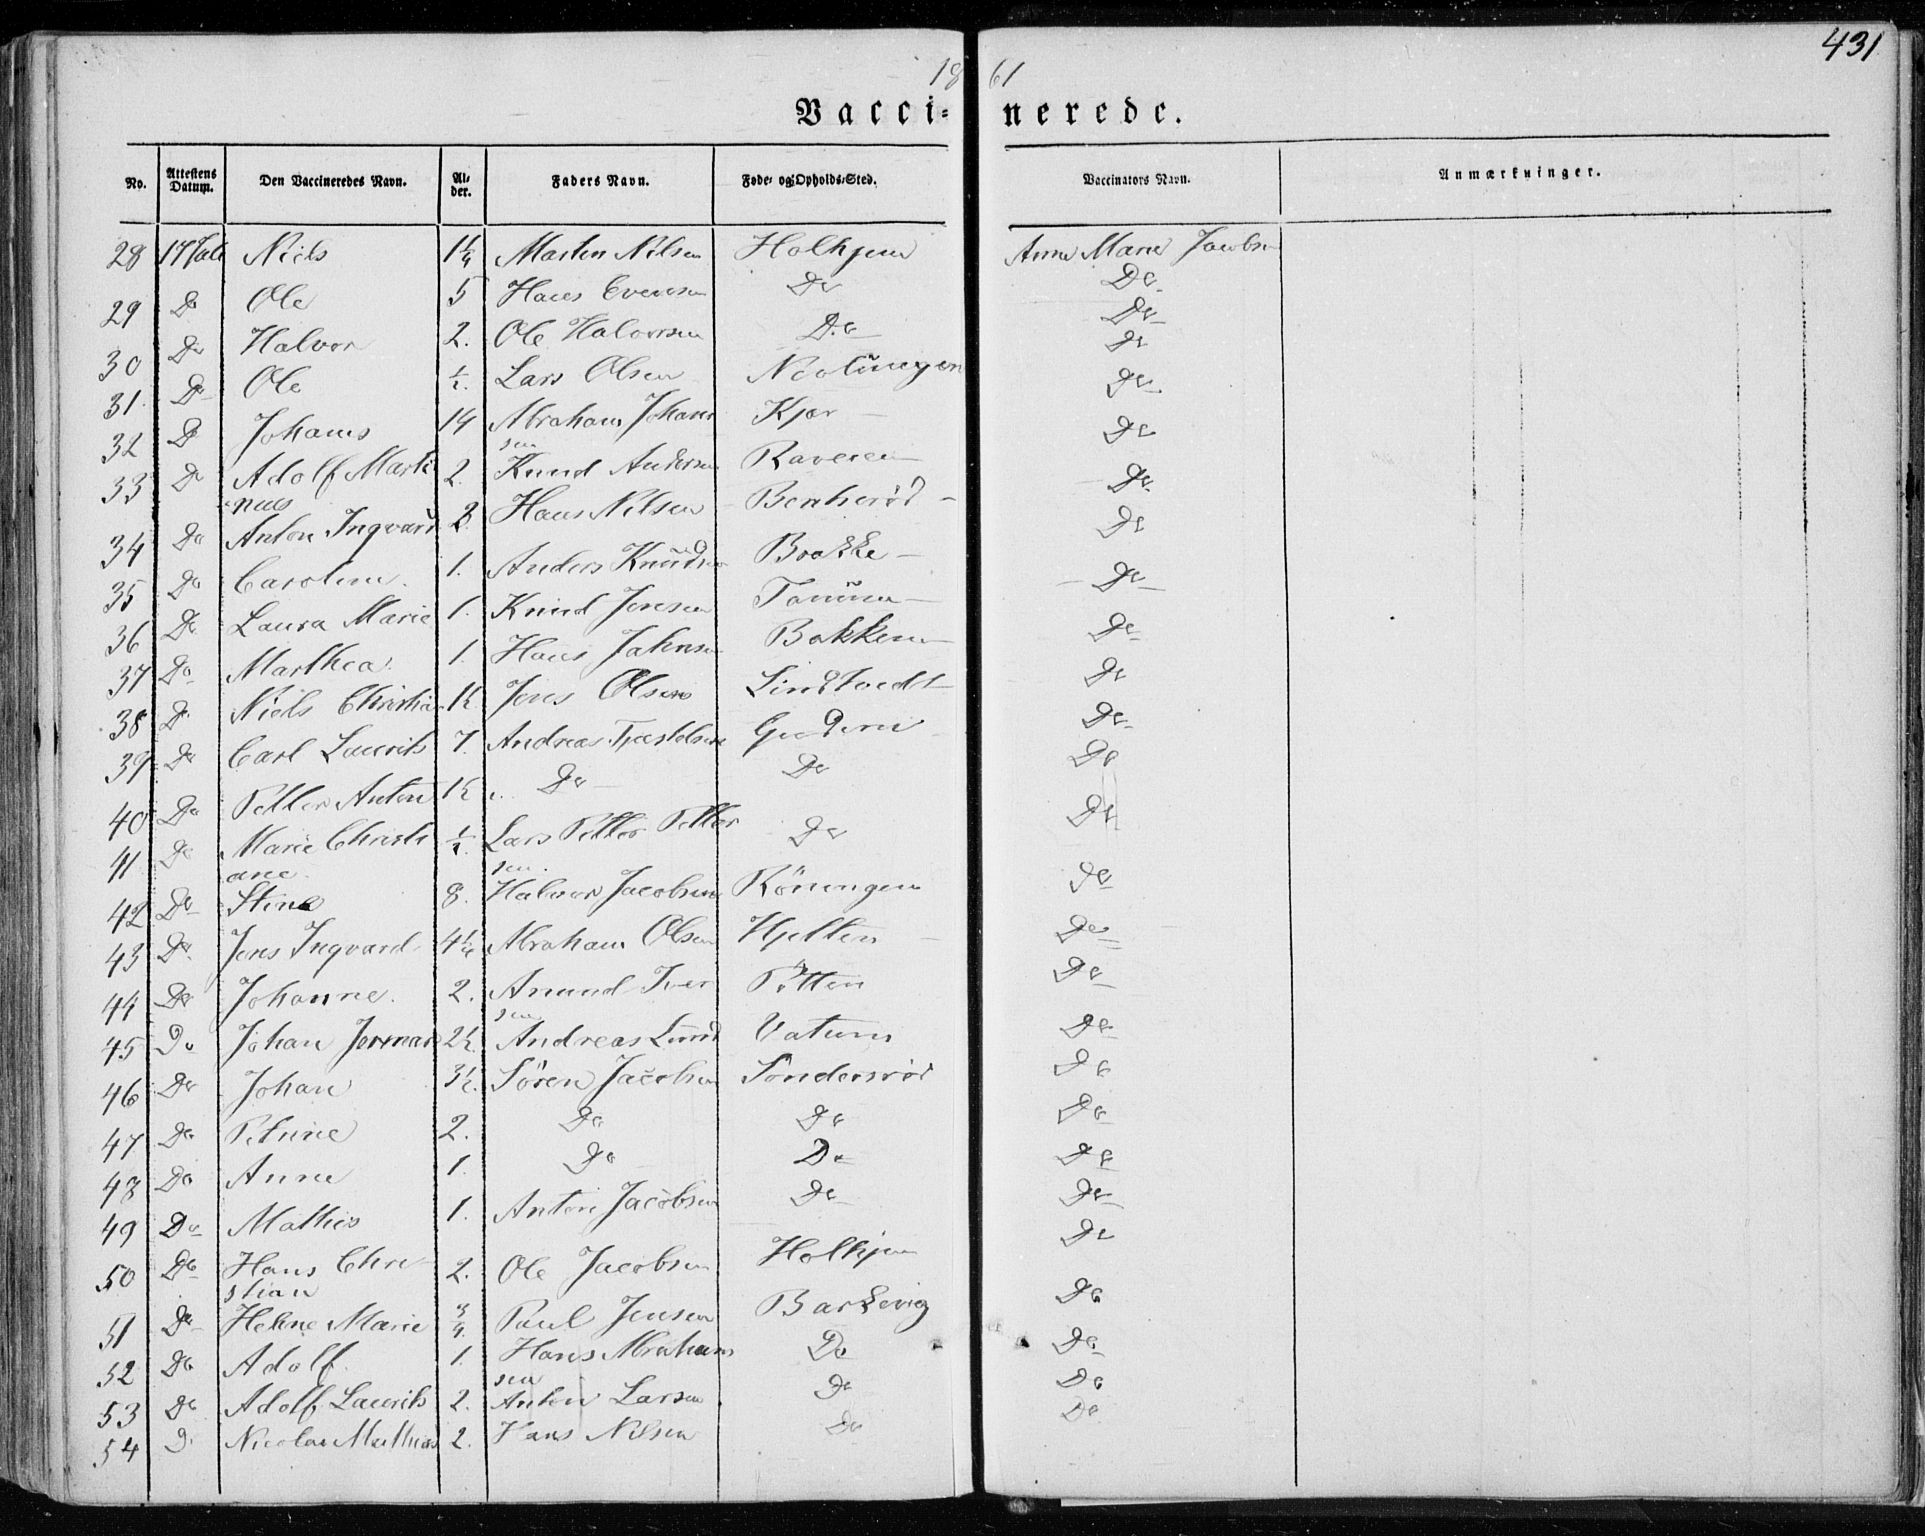 431
1861
Vacci-nerede.
No. Attestens Datum. Den Vaccineredes Navn. Al-der. Faders Navn. Føde- og Opholds-Sted. Vaccinators Navn. Anmærkninger.
28 17 Juli Niels 1¼ Marten Nilsen Holkjeun Anne Marie Jacobse
29 Do Ole 5 Hans Evensen Do Do
30 Do Halvor 2. Ole Halvorsen Do Do
31. Do Ole ½ Lars Olsen Nevlungen Do
32 Do Johans 14 Abraham Johan Kjær Do
sen
33 Do Adolf Marti 2. Knud Andersen Raveien Do
nus
34 Do Anton Ingvard 2 Hans Nilsen Benherød Do
35 Do Caroline. 1. Anders Knudsen Brække Do
36 Do Laura Marie 1. Knud Jensen Tanum Do
37 Do Marthea. 1. Hans Johnsen Bakken Do
38 Do Niels Christia 1½ Jens Olsen Lindtvedt Do
39 Do Carl Laurits 7. Andreas Do
40 Do Petter Anton 1½ Do Do Do
41 Do Marie Christi ½ Lars Petter Petter Do Do
ane. sen.
42 Do Stine 8. Halvor Jacobsen Röningen Do
43 Do Jens Ingvard 4½ Abraham Olsen Hjelten Do
44 Do Johanne. 2. Amund Iver Pøtten Do
sen
45 Do Johan Jørman 2½ Andreas Lund Vatum Do
46 Do Johan 3½ Sören Jacobsen Sondersrød Do
47 Do Petrine 2. Do Do Do
48 Do Anne 1. Do Do Do
49 Do Mathis 1. Anton Jacobsen Do Do
50 Do Hans Chri 2. Ole Jacobsen Holkjen Do
stian
51 Do Helene Marie ¾. Paul Jensen Barkevig Do
52 Do Adolf. 1. Hans Abraham Do Do
sen
53 Do Adolf Laurits 2. Anton Larsen Do Do
54 Do Nicolai Mathias 2. Hans Nilsen Do Do